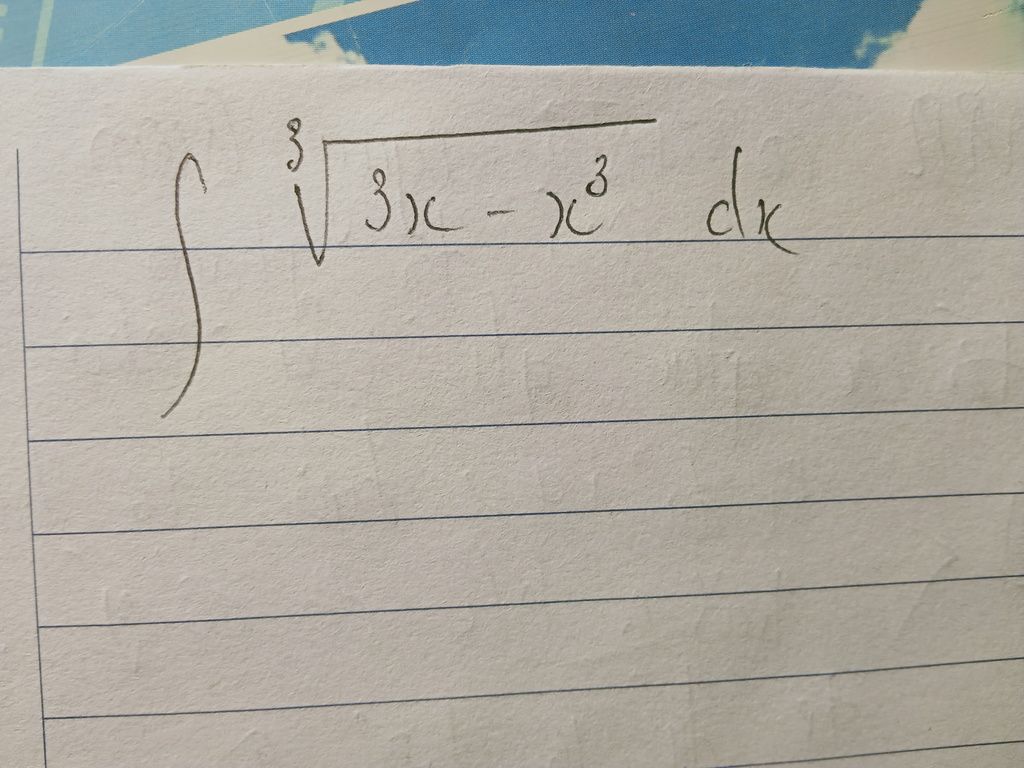 ∫ ∛(3x - x³) dx